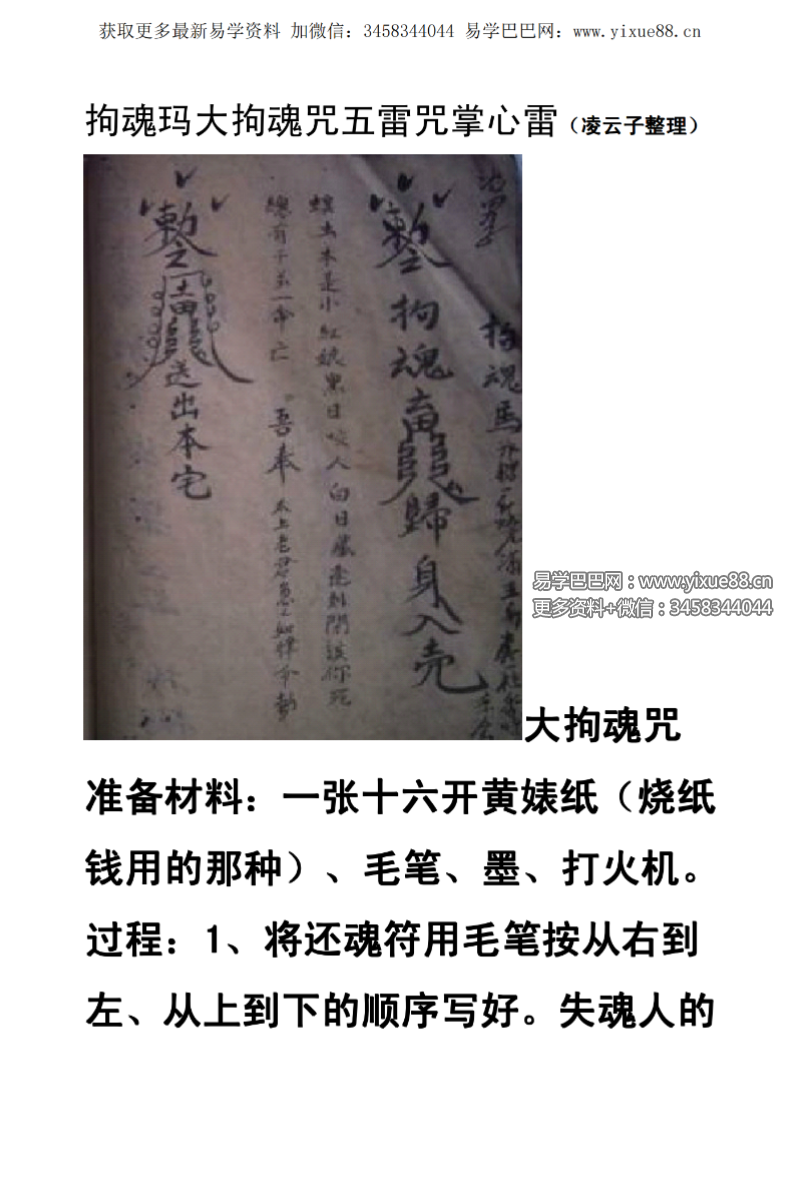 获取更多最新易学资料 加微信：3458344044 易学巴巴网：www.yixue88.cn
拘魂玛大拘魂咒五雷咒掌心雷（凌云子整理）
拘魂馬
拘魂
歸身入壳
蟲本是小紅娘黑日咬人白日藏
你死
總有千 一命亡 吾奉太上老君急急如律令勅
送出本宅
易学巴巴网：www.yixue88.cn
更多资料+微信：3458344044
大拘魂咒
准备材料：一张十六开黄婊纸（烧纸
钱用的那种）、毛笔、墨、打火机。
过程：1、将还魂符用毛笔按从右到
左、从上到下的顺序写好。失魂人的